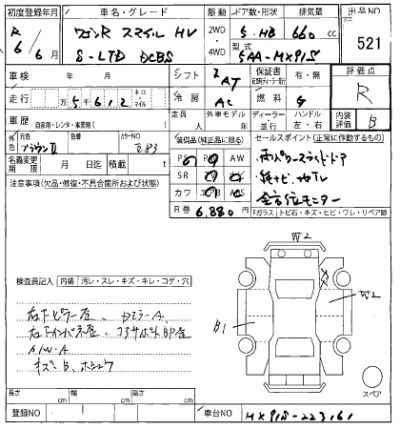 初度登録年月 車名・グレード 駆動 ドア数・形状 排気量 出品NO
R 6/6月 ワゴンR スマイル HV 2WD・4WD 5 HB 660 cc 521
S-LTD DCBS 型式 5AA-MX91S
車検 年 月 シフト AT 保証書 有・無 評価点
走行 万5千612 キロ・マイル 冷房 AC 燃料 G R
車歴 自家用・レンタ・事業用( ) 定員 人 外車モデル 年 ディーラー・並行 ハンドル 左・右 内装評価 B
元色 ブラウンⅡ 色替 カラーNO 装備品(純正品に限る) セールスポイント(正常に作動するもの)
名義変更期限 月 日迄 積載 t AW 両パワースライドドア
注意事項(欠品・修復・不具合箇所および状態) SR 純ナビ、地TV
カワ 全方位モニター
R券 6,880円 Fガラス トビ石・キズ・ヒビ・ワレ・リペア跡
W2
検査員記入 内装 汚レ・スレ・キズ・キレ・コゲ・穴
W2
B1
右下ピラー歪、DミラーA、
A/W・A
スペア
長さ cm 幅 cm 高さ cm
登録NO 車台NO MX91S-223161